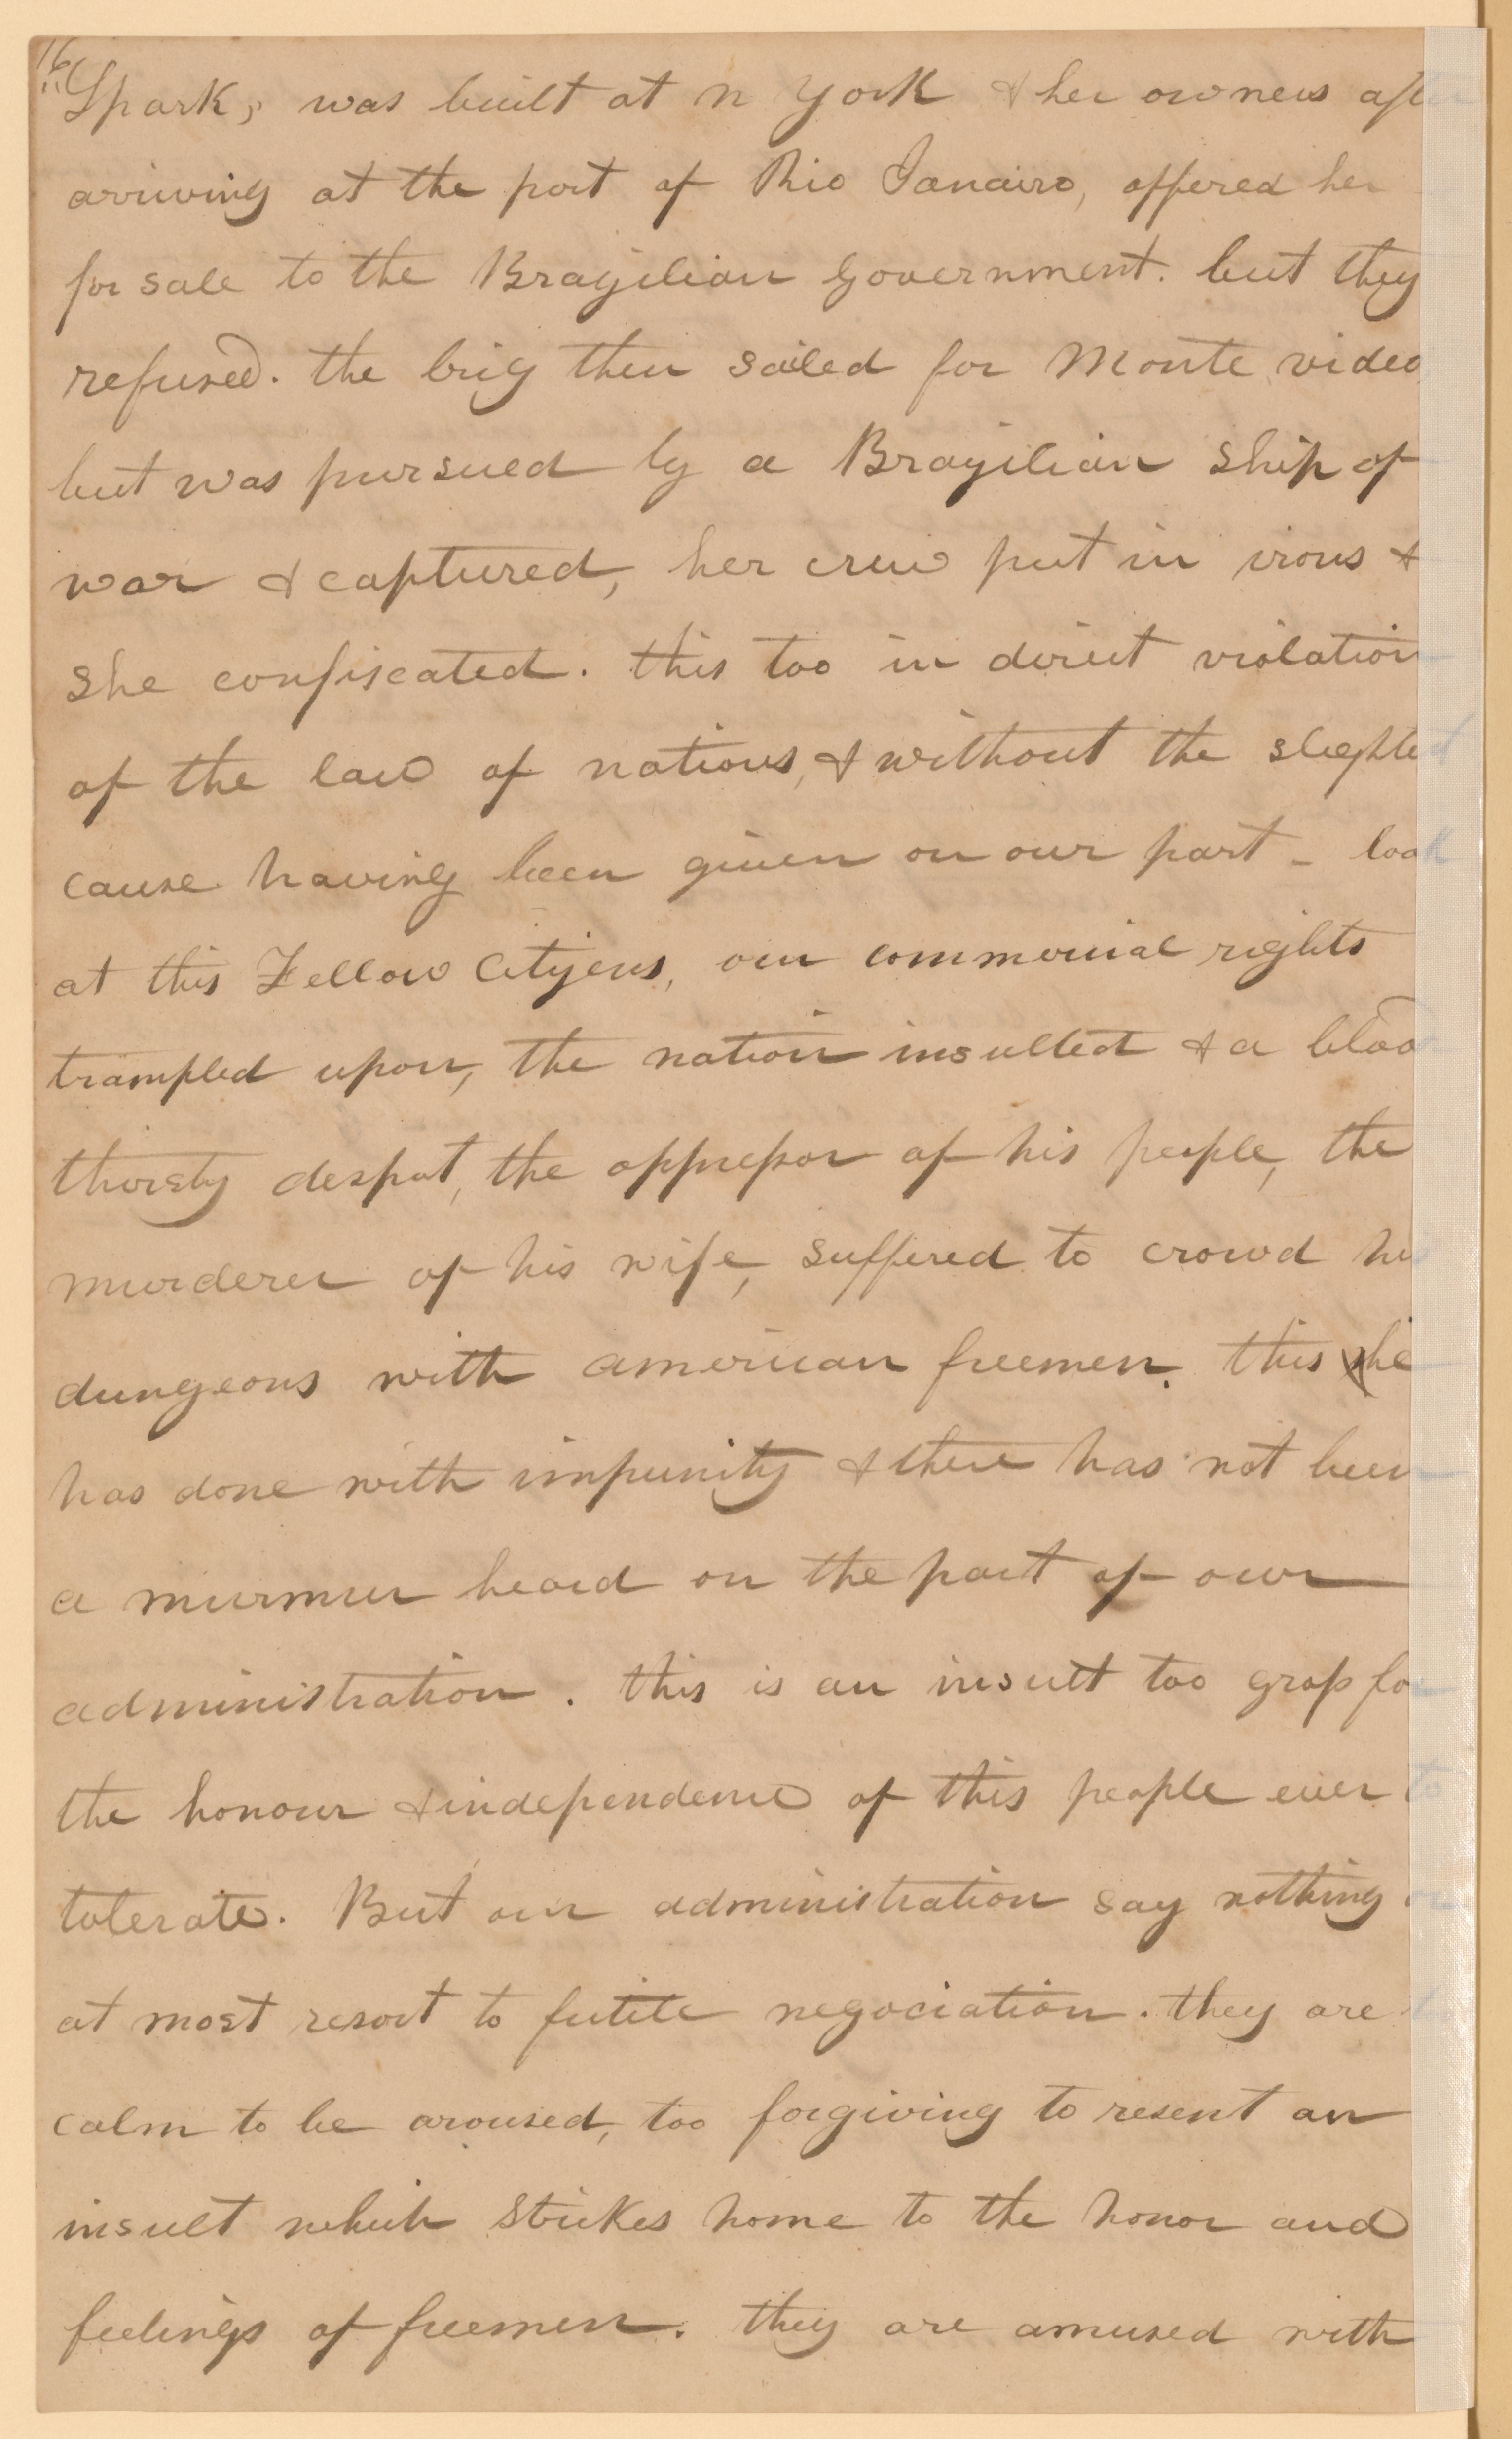 16
"Spark," was built at n York & her owners after
arriving at the port of Rio Janairo, offered her
for sale to the Brazilian Government. but they
refused. the brig then sailed for Monte video,
but was pursued by a Brazilian ship of
war & captured, her crew put in irons &
she confiscated. this too in direct violation
of the law of nations, & without the slighted
cause having been given on our part - look
at this Fellow Citizens, our commercial rights
trampled upon, the nation insulted & a blood
thirsty despot, the oppressor of his people, the
murderer of his wife, suffered to crowd his
dungeons with american freemen. this he
has done with impunity & there has not been
a murmur heard on the part of our
administration. this is an insult too gross for
the honour & independence of this people ever to
tolerate. But our administration say nothing or
at most resort to futile negociation. they are
calm to be aroused, too forgiving to resent an
insult which strikes home to the honor and
feelings of freemen. they are amused with